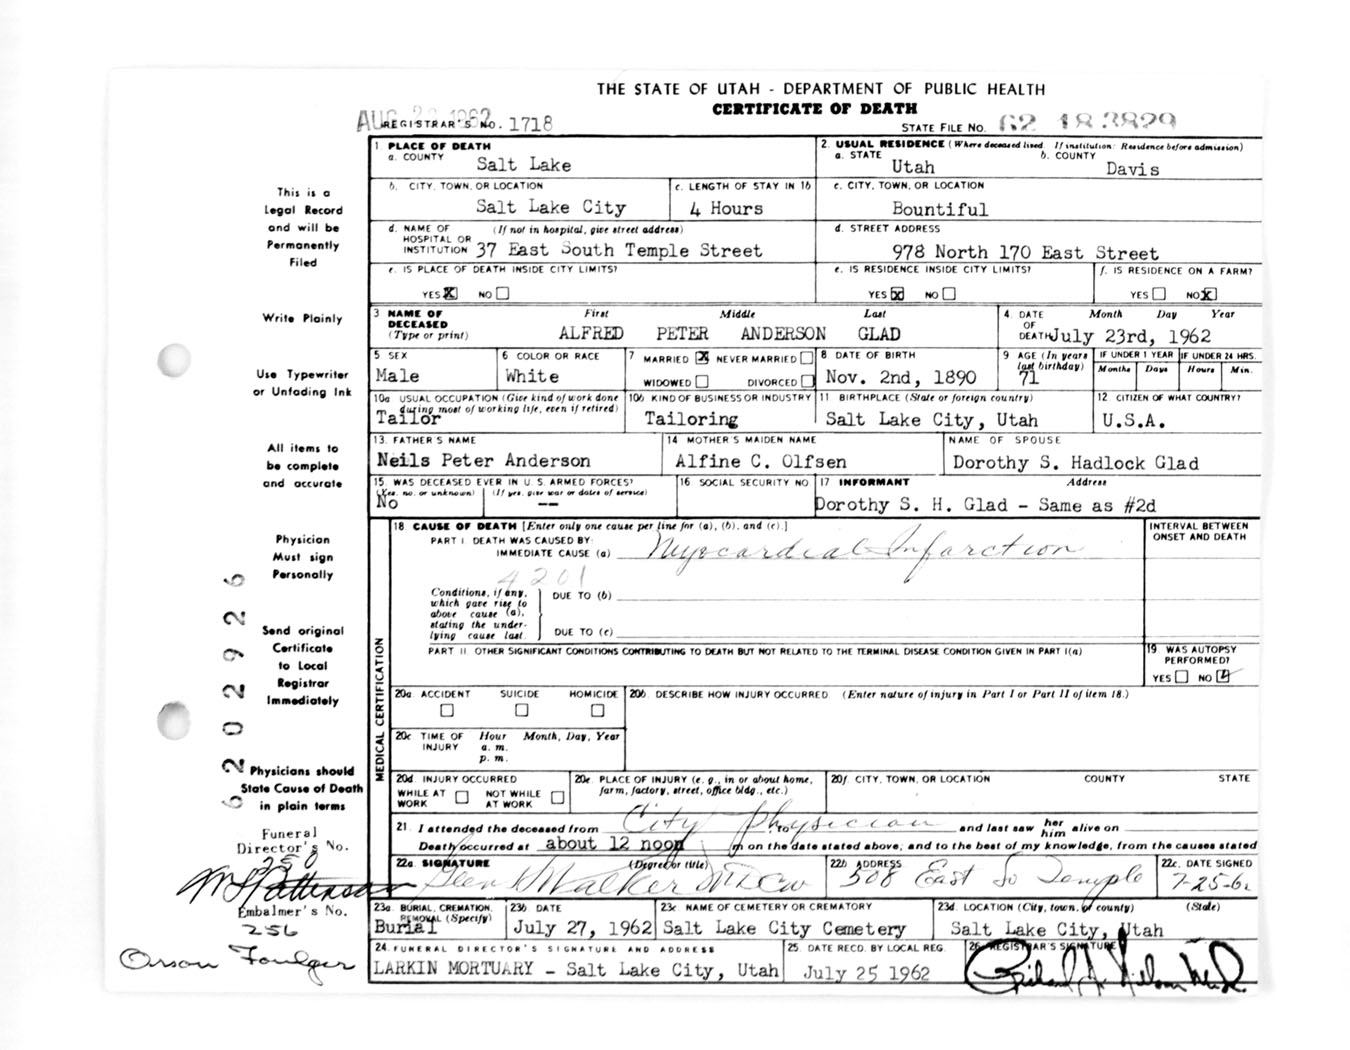 THE STATE OF UTAH - DEPARTMENT OF PUBLIC HEALTH
CERTIFICATE OF DEATH
AUG 1962
REGISTRAR'S No. 1718
STATE FILE No. 62 18 3829
1 PLACE OF DEATH
a. COUNTY
Salt Lake
2. USUAL RESIDENCE (Where deceased lived. If institution: Residence before admission)
a. STATE b. COUNTY
Utah Davis
b. CITY, TOWN, OR LOCATION
Salt Lake City
c. LENGTH OF STAY IN 1b
4 Hours
c. CITY, TOWN, OR LOCATION
Bountiful
d. NAME OF HOSPITAL OR INSTITUTION (If not in hospital, give street address)
37 East South Temple Street
d. STREET ADDRESS
978 North 170 East Street
e. IS PLACE OF DEATH INSIDE CITY LIMITS?
YES X NO
e. IS RESIDENCE INSIDE CITY LIMITS?
YES X NO
f. IS RESIDENCE ON A FARM?
YES NO X
3 NAME OF DECEASED (Type or print)
First Middle Last
ALFRED PETER ANDERSON GLAD
4. DATE OF DEATH Month Day Year
July 23rd, 1962
5 SEX
Male
6 COLOR OR RACE
White
7 MARRIED X NEVER MARRIED
WIDOWED DIVORCED
8 DATE OF BIRTH
Nov. 2nd, 1890
9 AGE (In years last birthday)
71
IF UNDER 1 YEAR
Months Days
IF UNDER 24 HRS.
Hours Min.
10a USUAL OCCUPATION (Give kind of work done during most of working life, even if retired)
Tailor
10b KIND OF BUSINESS OR INDUSTRY
Tailoring
11 BIRTHPLACE (State or foreign country)
Salt Lake City, Utah
12 CITIZEN OF WHAT COUNTRY?
U.S.A.
13. FATHER'S NAME
Neils Peter Anderson
14 MOTHER'S MAIDEN NAME
Alfine C. Olfsen
NAME OF SPOUSE
Dorothy S. Hadlock Glad
15 WAS DECEASED EVER IN U.S. ARMED FORCES?
(Yes, no, or unknown) (If yes, give war or dates of service)
No --
16 SOCIAL SECURITY NO
17 INFORMANT Address
Dorothy S. H. Glad - Same as #2d
18 CAUSE OF DEATH [Enter only one cause per line for (a), (b), and (c).]
PART I. DEATH WAS CAUSED BY:
IMMEDIATE CAUSE (a) Myocardial Infarction
4201
Conditions, if any, which gave rise to above cause (a), stating the underlying cause last.
DUE TO (b)
DUE TO (c)
INTERVAL BETWEEN ONSET AND DEATH
PART II. OTHER SIGNIFICANT CONDITIONS CONTRIBUTING TO DEATH BUT NOT RELATED TO THE TERMINAL DISEASE CONDITION GIVEN IN PART I(a)
19. WAS AUTOPSY PERFORMED?
YES NO
20a. ACCIDENT SUICIDE HOMICIDE
20b. DESCRIBE HOW INJURY OCCURRED. (Enter nature of injury in Part I or Part II of item 18.)
20c TIME OF INJURY Hour a. m. p. m. Month, Day, Year
20d. INJURY OCCURRED
WHILE AT WORK NOT WHILE AT WORK
20e. PLACE OF INJURY (e. g., in or about home, farm, factory, street, office bldg., etc.)
20f. CITY, TOWN, OR LOCATION COUNTY STATE
21. I attended the deceased from City to Physician and last saw her him alive on
Death occurred at about 12 noon m on the date stated above; and to the best of my knowledge, from the causes stated
22a. SIGNATURE (Degree or title)
Walker MD
22b ADDRESS
508 East So Temple
22c. DATE SIGNED
7-25-62
23a. BURIAL, CREMATION, REMOVAL (Specify)
Burial
23b. DATE
July 27, 1962
23c. NAME OF CEMETERY OR CREMATORY
Salt Lake City Cemetery
23d. LOCATION (City, town, or county) (State)
Salt Lake City, Utah
24. FUNERAL DIRECTOR'S SIGNATURE AND ADDRESS
LARKIN MORTUARY - Salt Lake City, Utah
25. DATE RECD. BY LOCAL REG.
July 25 1962
26. REGISTRAR'S SIGNATURE
MEDICAL CERTIFICATION
This is a
Legal Record
and will be
Permanently
Filed
Write Plainly
Use Typewriter
or Unfading Ink
All items to
be complete
and accurate
Physician
Must sign
Personally
Send original
Certificate
to Local
Registrar
Immediately
Physicians should
State Cause of Death
in plain terms
Funeral
Director's No.
250
Embalmer's No.
256
Orson Foulger